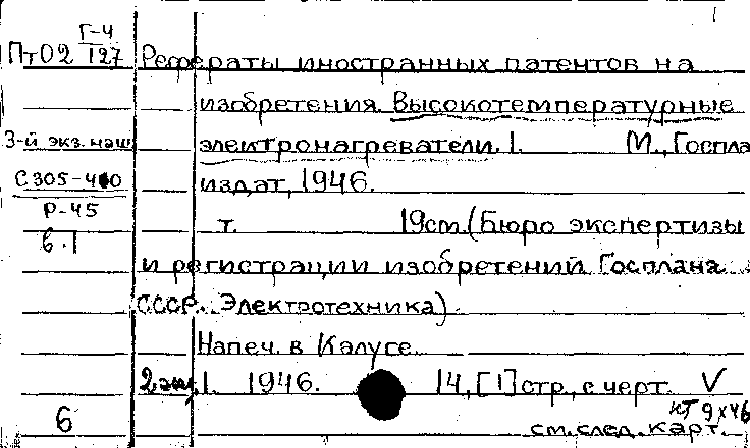 Г-4
ПтО2 127 Рефераты иностранных патентов на
изобретения. Высокотемпературные
3-й экз. наш электронагреватели. 1. М., Госпла
С305-410 издат, 1946.
Р-45
в.1 т. 19см. (Бюро экспертизы
и регистрации изобретений Госплана
СССР. Электротехника).
Напеч. в Калуге.
2 экз. 1. 1946. 14, [1] стр., с черт. V
КТ 9х46
6 см. след. карт.